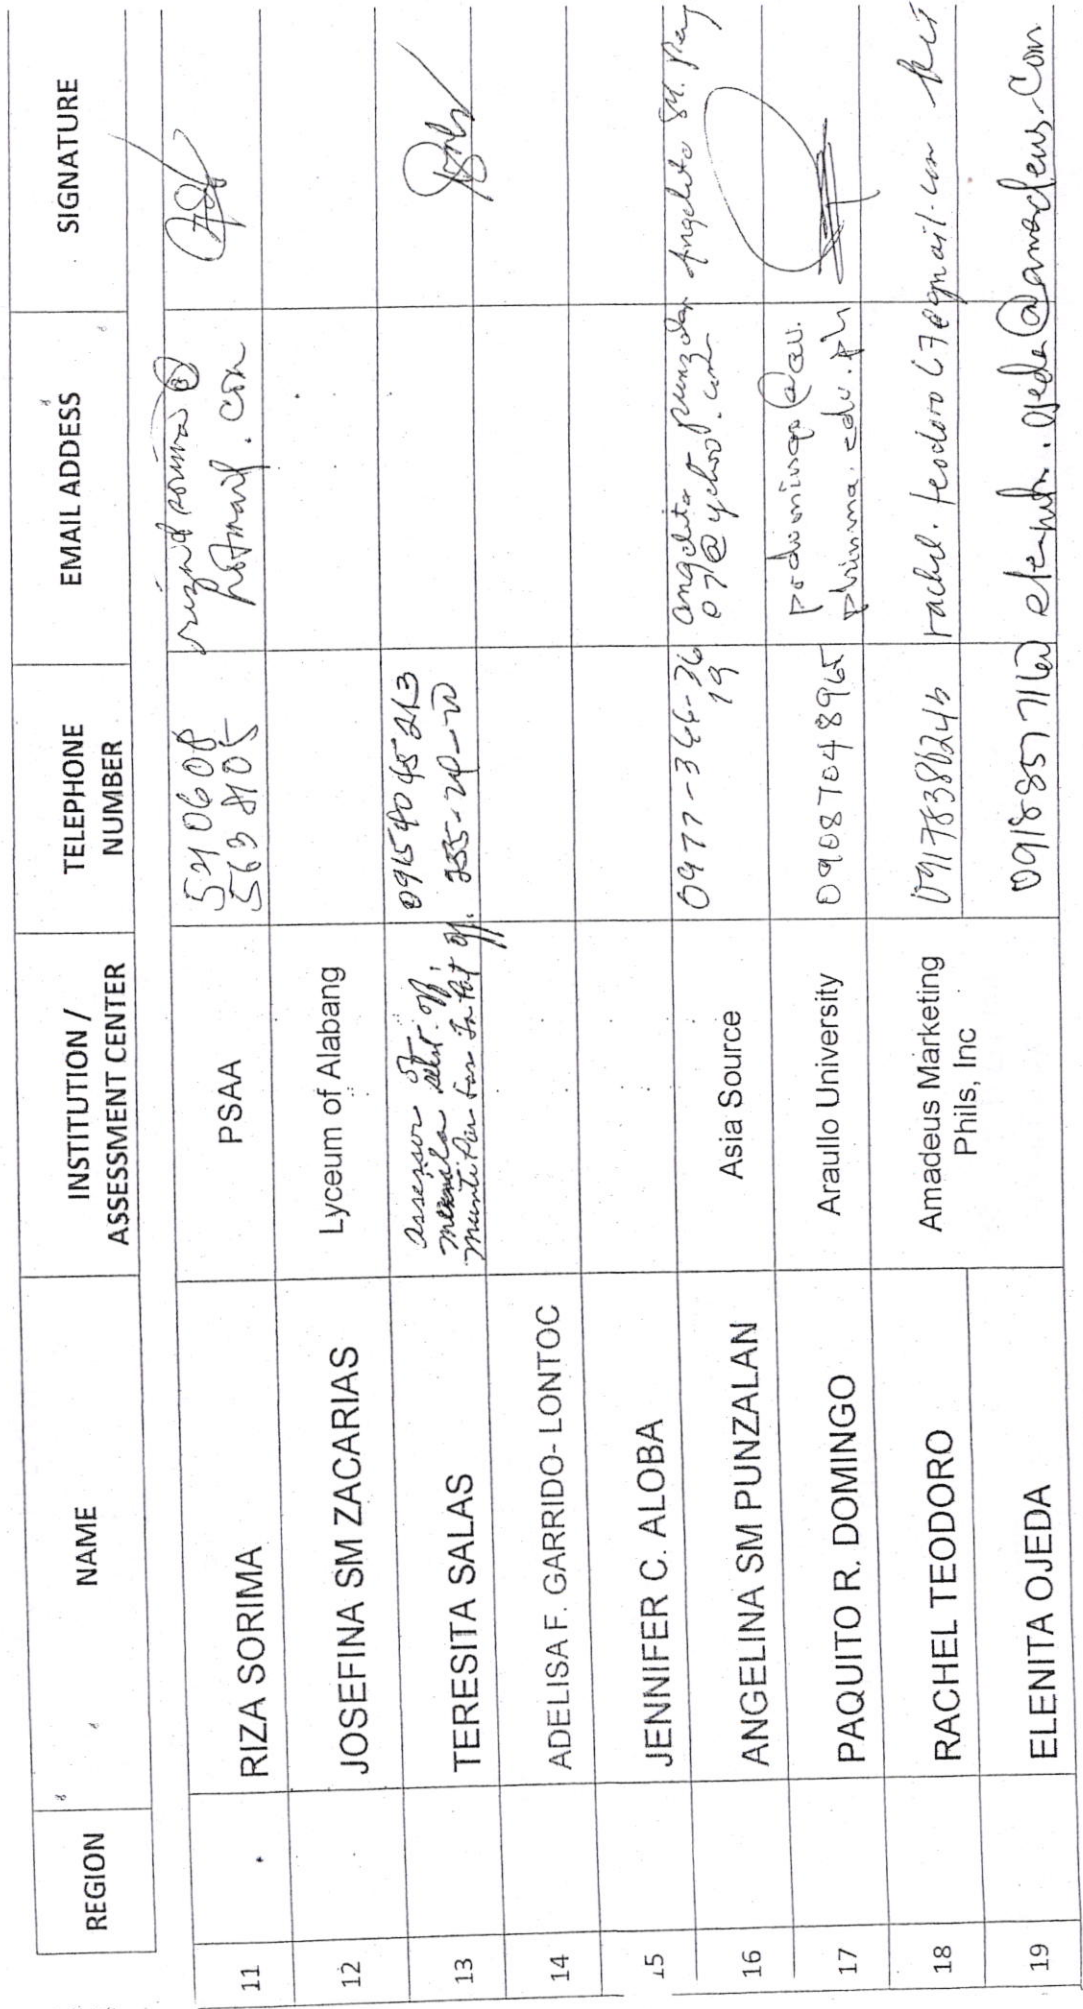 REGION NAME INSTITUTION / ASSESSMENT CENTER TELEPHONE NUMBER EMAIL ADDESS SIGNATURE
11 RIZA SORIMA PSAA
hotmail.com
12 JOSEFINA SM ZACARIAS Lyceum of Alabang
13 TERESITA SALAS Assessor of
14 ADELISA F. GARRIDO- LONTOC
15 JENNIFER C. ALOBA
16 ANGELINA SM PUNZALAN Asia Source 0977-366-36 angelita punzalan
19 07@yahoo.com
17 PAQUITO R. DOMINGO Araullo University 09087048965 prdomingo@au.
phinma.edu.ph
18 RACHEL TEODORO Amadeus Marketing Phils, Inc rachel.teodoro67@gmail.com
19 ELENITA OJEDA elenita.ojeda@amadeus.com